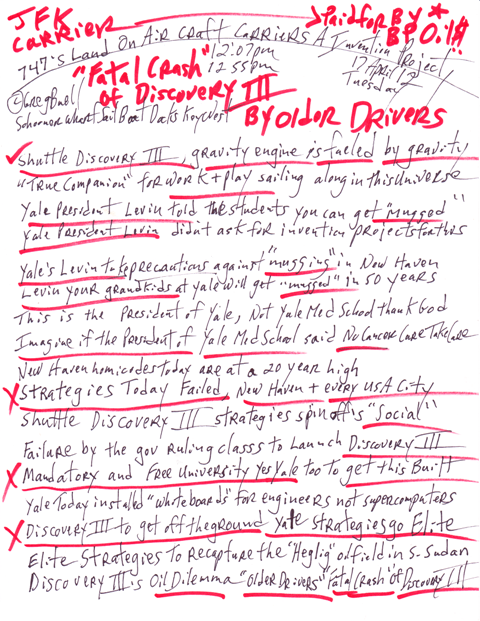 JFK
CARRIER
>Paid for By *
BP Oil$
747's Land On AirCraft CARRIERS A Invention Project
12:07pm
12:55pm
17 April 12
Tuesday
"Fatal Crash"
of Discovery III
By Older Drivers
Schooner Wharf Sail Boat Docks Key West
Shuttle Discovery III, gravity engine is fueled by gravity
"True Companion" for work + play sailing along in this Universe
Yale President Levin told the students you can get "mugged"
Yale President Levin didn't ask for invention projects for this
Yale's Levin take precautions against "mugging" in New Haven
Levin your grandkids at Yale will get "mugged" in 50 years
This is the President of Yale, Not Yale Med School thank God
Imagine if the President of Yale Med School said No Cancer Cure Take Care
New Haven homicides today are at a 20 year high
X Strategies Today Failed, New Haven + every USA City
Shuttle Discovery III strategies spin off is "Social"
Failure by the gov ruling classs to Launch Discovery III
X Mandatory and Free University yes Yale too to get this Built
Yale Today installed "whiteboards" for engineers not supercomputers
X Discovery III to get off the ground Yale strategies go Elite
Elite Strategies To Recapture the "Heglig" oilfield in S. Sudan
Discovery III is Oil Dilemma "Older Drivers" "Fatal Crash" of Discovery III